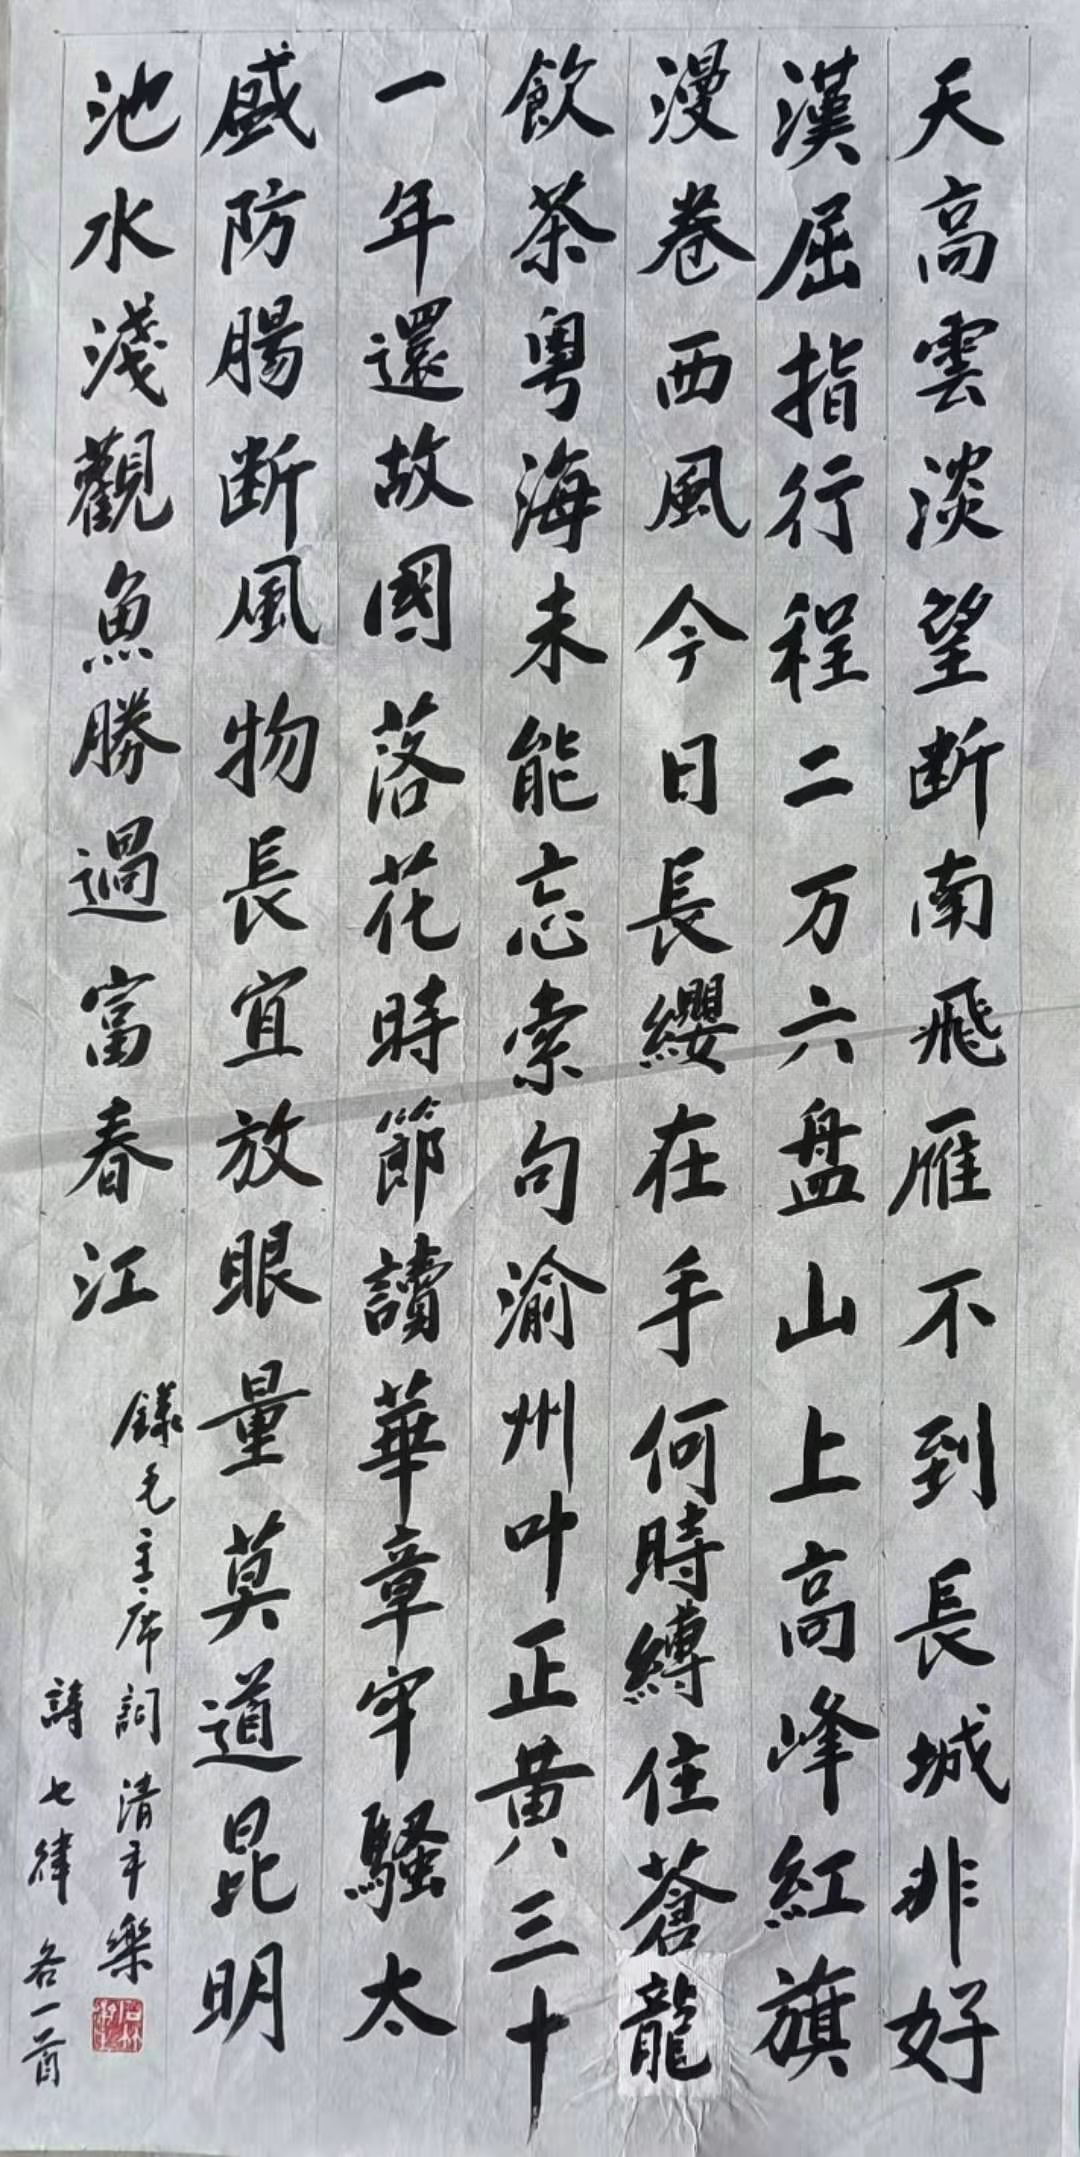 天高雲淡望断南飛雁不到長城非好
漢屈指行程二万六盘山上高峰紅旗
漫卷西風今日長纓在手何時縛住蒼龍
飲茶粤海未能忘索句渝州叶正黄三十
一年還故國落花時節讀華章牢騷太
盛防腸断風物長宜放眼量莫道昆明
池水淺觀魚勝過富春江
録毛主席詞清平樂
詩七律各一首